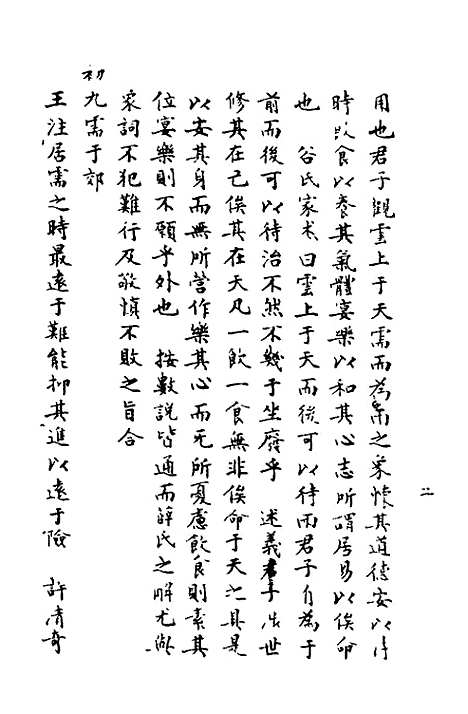 用也君子觀雲上于天需而為雨之象懷其道德安以待
時飲食以養其氣體宴樂以和其心志所謂居易以俟命
也　谷氏家杰曰雲上于天而後可以待雨君子自為于
前而後可以待治不然不幾于坐廢乎　述義君子出世
修其在己俟其在天凡一飲一食無非俟命于天之具是
以安其身而無所營作樂其心而无所憂慮飲食則素其
位宴樂則不願乎外也　按數說皆通而薛氏之解尤與
彖詞不犯難行及敬慎不敗之旨合
初九需于郊
王注居需之時最遠于難能抑其進以遠于險　許清奇
二